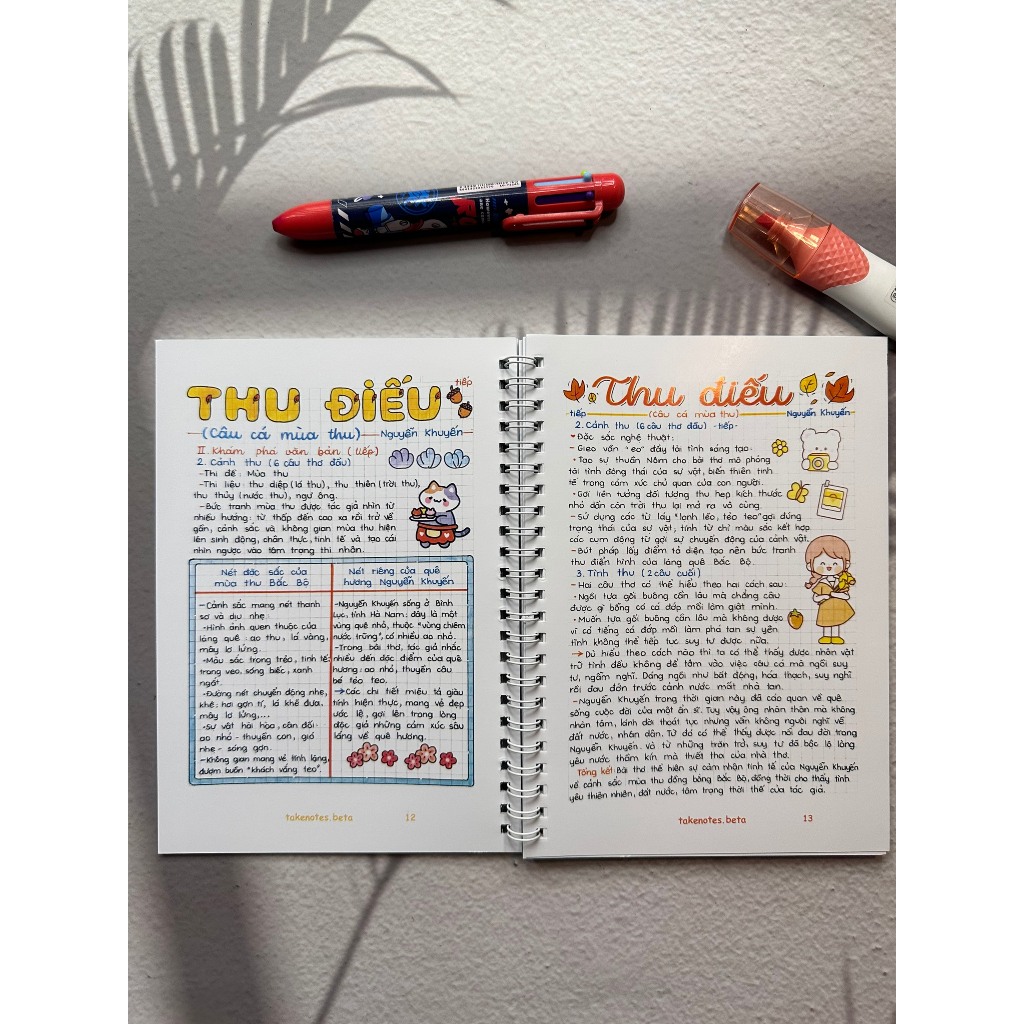 THU ĐIẾU tiếp
(Câu cá mùa thu) Nguyễn Khuyến
II. Khám phá văn bản (tiếp)
2. Cảnh thu (6 câu thơ đầu)
-Thi đề: Mùa thu
-Thi liệu: thu diệp (lá thu), thu thiên (trời thu),
thu thủy (nước thu), ngư ông.
-Bức tranh mùa thu được tác giả nhìn từ
nhiều hướng: từ thấp đến cao xa rồi trở về
gần, cảnh sắc và không gian mùa thu hiện
lên sinh động, chân thực, tinh tế và tạo cái
nhìn ngược vào tâm trạng thi nhân.
Nét đặc sắc của
mùa thu Bắc Bộ
-Cảnh sắc mang nét thanh
sơ và dịu nhẹ:
•Hình ảnh quen thuộc của
làng quê: ao thu, lá vàng,
mây lơ lửng.
•Màu sắc trong trẻo, tinh tế:
trong veo, sóng biếc, xanh
ngắt.
•Đường nét chuyển động nhẹ,
khẽ: hơi gợn tí, lá khẽ đưa,
mây lơ lửng,...
•Sự vật hài hòa, cân đối:
ao nhỏ - thuyền con, gió
nhẹ - sóng gợn.
-Không gian mang vẻ tĩnh lặng,
đượm buồn "khách vắng teo".
Nét riêng của quê
hương Nguyễn Khuyến
-Nguyễn Khuyến sống ở Bình
Lục, tỉnh Hà Nam: đây là một
vùng quê nhỏ, thuộc "vùng chiêm
nước trũng", có nhiều ao nhỏ.
-Trong bài thơ, tác giả nhắc
nhiều đến đặc điểm của quê
hương: ao nhỏ, thuyền câu
bé tẻo teo.
→Các chi tiết miêu tả giàu
tính hiện thực, mang vẻ đẹp
ước lệ, gợi lên trong lòng
độc giả những cảm xúc sâu
lắng về quê hương.
takenotes.beta 12
Thu điếu
tiếp (Câu cá mùa thu) Nguyễn Khuyến
2. Cảnh thu (6 câu thơ đầu) -tiếp-
Đặc sắc nghệ thuật:
-Gieo vần "eo" đầy tài tình sáng tạo:
•Tạo sự thuần Nôm cho bài thơ mô phỏng
tài tình động thái của sự vật, biến thiên tinh
tế trong cảm xúc chủ quan của con người.
•Gợi liên tưởng đối tượng thu hẹp kích thước
nhỏ dần còn trời thu lại mở ra vô cùng.
-Sử dụng các từ láy "lạnh lẽo, tẻo teo" gợi đúng
trạng thái của sự vật; tính từ chỉ màu sắc kết hợp
các cụm động từ gợi sự chuyển động của cảnh vật.
-Bút pháp lấy điểm tả diện tạo nên bức tranh
thu điển hình của làng quê Bắc Bộ.
3. Tình thu (2 câu cuối)
-Hai câu thơ có thể hiểu theo hai cách sau:
•Ngồi tựa gối buông cần lâu mà chẳng câu
được gì bỗng có cá đớp mồi làm giật mình.
•Muốn tựa gối buông cần lâu mà không được
vì có tiếng cá đớp mồi làm phá tan sự yên
tĩnh không thể tiếp tục suy tư được nữa.
→Dù hiểu theo cách nào thì ta có thể thấy được nhân vật
trữ tình đều không để tâm vào việc câu cá mà ngồi suy
tư, ngẫm nghĩ. Dáng ngồi như bất động, hóa thạch, suy nghĩ
rồi đau đớn trước cảnh nước mất nhà tan.
-Nguyễn Khuyến trong thời gian này đã cáo quan về quê
sống cuộc đời của một ẩn sĩ. Tuy vậy ông nhàn thân mà không
nhàn tâm, lánh đời thoát tục nhưng vẫn không nguôi nghĩ về
đất nước, nhân dân. Từ đó có thể thấy được nỗi đau đời trong
Nguyễn Khuyến và từ những trăn trở, suy tư đã bộc lộ lòng
yêu nước thầm kín mà thiết tha của nhà thơ.
Tổng kết: Bài thơ thể hiện sự cảm nhận tinh tế của Nguyễn Khuyến
về cảnh sắc mùa thu đồng bằng Bắc Bộ, đồng thời cho thấy tình
yêu thiên nhiên, đất nước, tâm trạng thời thế của tác giả.
takenotes.beta 13